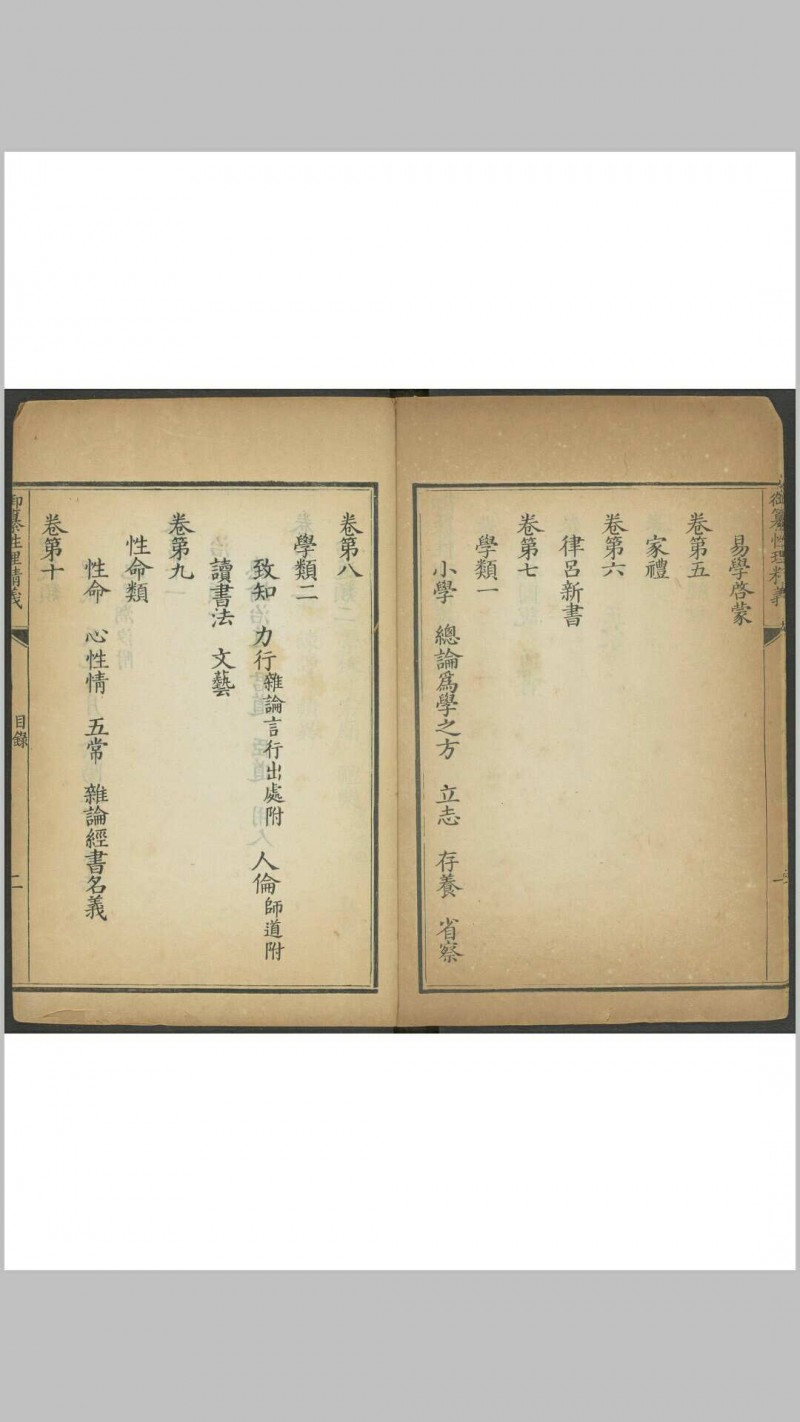 御纂性理精義
易學啓蒙
卷第五
家禮
卷第六
律呂新書
卷第七
學類一
小學 總論爲學之方 立志 存養 省察
卷第八
學類二
致知 力行雜論言行出處附 人倫師道附
讀書法 文藝
卷第九
性命類
性命 心性情 五常 雜論經書名義
卷第十
御纂性理精義 目錄 二